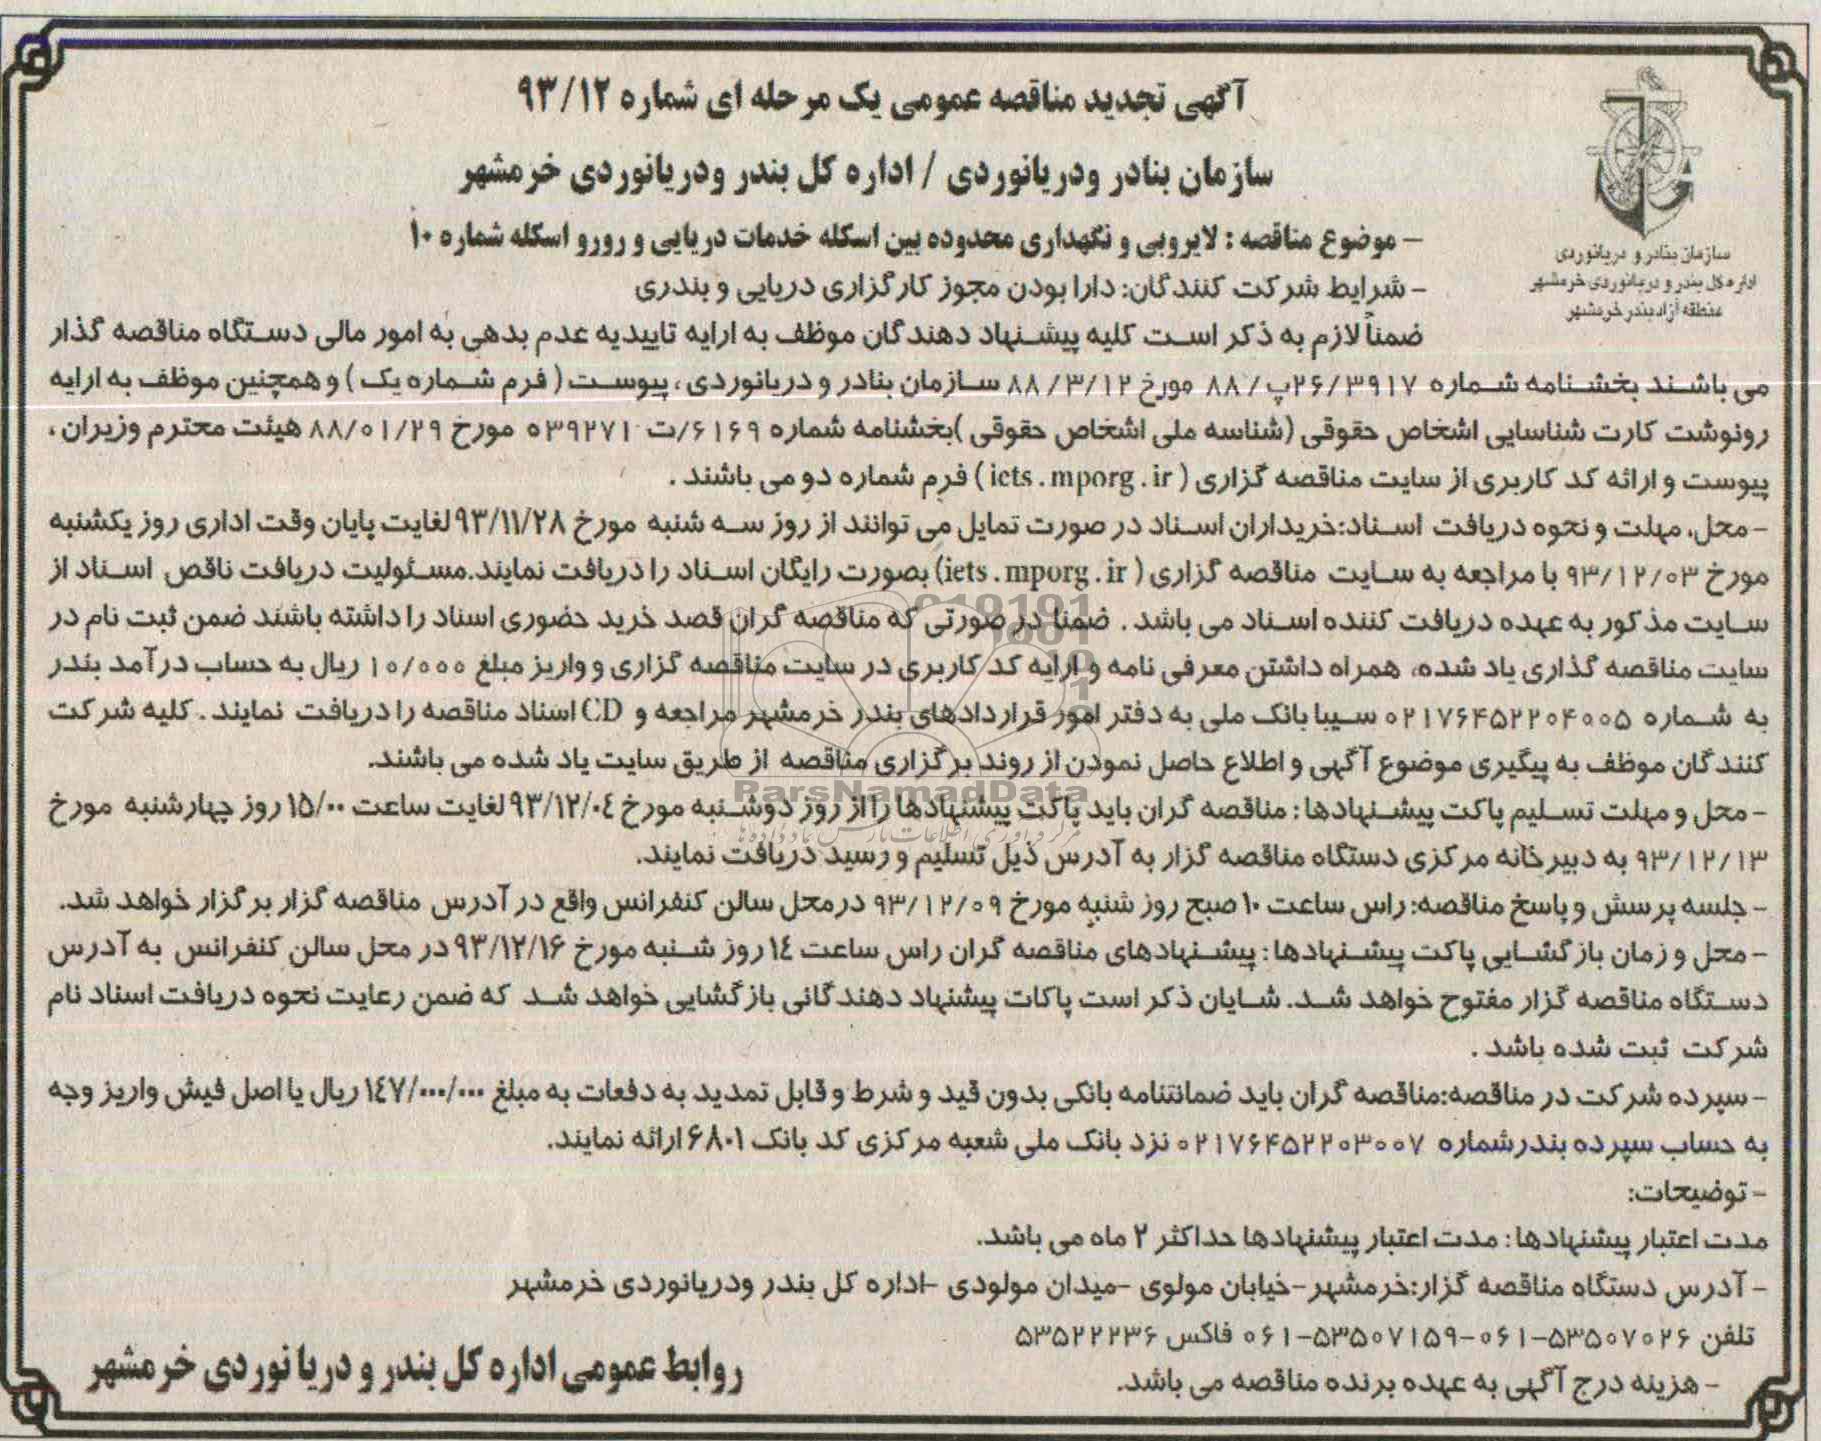 آگهی تجدید مناقصه عمومی یک مرحله ای شماره ۹۳/۱۲
سازمان بنادر ودریانوردی / اداره کل بندر ودریانوردی خرمشهر
سازمان بنادر و دریانوردی
اداره کل بندر و دریانوردی خرمشهر
منطقه آزاد بندر خرمشهر
- موضوع مناقصه : لایروبی و نگهداری محدوده بین اسکله خدمات دریایی و رورو اسکله شماره ۱۰
- شرایط شرکت کنندگان: دارا بودن مجوز کارگزاری دریایی و بندری
ضمناً لازم به ذکر است کلیه پیشنهاد دهندگان موظف به ارایه تاییدیه عدم بدهی به امور مالی دستگاه مناقصه گذار
می باشند بخشنامه شماره ۲۶/۳۹۱۷پ/ ۸۸ مورخ ۸۸/۳/۱۲ سازمان بنادر و دریانوردی، پیوست ( فرم شماره یک ) و همچنین موظف به ارایه
رونوشت کارت شناسایی اشخاص حقوقی (شناسه ملی اشخاص حقوقی )بخشنامه شماره ۶۱۶۹/ت ۳۹۲۷۱ه مورخ ۸۸/۰۱/۲۹ هیئت محترم وزیران،
پیوست و ارائه کد کاربری از سایت مناقصه گزاری ( iets . mporg . ir ) فرم شماره دو می باشند .
- محل، مهلت و نحوه دریافت اسناد:خریداران اسناد در صورت تمایل می توانند از روز سه شنبه مورخ ۹۳/۱۱/۲۸ لغایت پایان وقت اداری روز یکشنبه
مورخ ۹۳/۱۲/۰۳ با مراجعه به سایت مناقصه گزاری ( iets . mporg . ir) بصورت رایگان اسناد را دریافت نمایند.مسئولیت دریافت ناقص اسناد از
سایت مذکور به عهده دریافت کننده اسناد می باشد . ضمنا در صورتی که مناقصه گران قصد خرید حضوری اسناد را داشته باشند ضمن ثبت نام در
سایت مناقصه گذاری یاد شده، همراه داشتن معرفی نامه و ارایه کد کاربری در سایت مناقصه گزاری و واریز مبلغ ۱۰/۰۰۰ ریال به حساب درآمد بندر
به شماره ۰۲۱۷۶۴۵۲۲۰۴۰۰۵ سیبا بانک ملی به دفتر امور قراردادهای بندر خرمشهر مراجعه و CD اسناد مناقصه را دریافت نمایند . کلیه شرکت
کنندگان موظف به پیگیری موضوع آگهی و اطلاع حاصل نمودن از روند برگزاری مناقصه از طریق سایت یاد شده می باشند.
ParsNamadData
- محل و مهلت تسلیم پاکت پیشنهادها : مناقصه گران باید پاکت پیشنهادها را از روز دوشنبه مورخ ۹۳/۱۲/۰۴ لغایت ساعت ۱۵/۰۰ روز چهارشنبه مورخ
۹۳/۱۲/۱۳ به دبیرخانه مرکزی دستگاه مناقصه گزار به آدرس ذیل تسلیم و رسید دریافت نمایند.
- جلسه پرسش و پاسخ مناقصه: راس ساعت ۱۰ صبح روز شنبه مورخ ۹۳/۱۲/۰۹ درمحل سالن کنفرانس واقع در آدرس مناقصه گزار برگزار خواهد شد.
- محل و زمان بازگشایی پاکت پیشنهادها : پیشنهادهای مناقصه گران راس ساعت ۱٤ روز شنبه مورخ ۹۳/۱۲/۱۶ در محل سالن کنفرانس به آدرس
دستگاه مناقصه گزار مفتوح خواهد شد. شایان ذکر است پاکات پیشنهاد دهندگانی بازگشایی خواهد شد که ضمن رعایت نحوه دریافت اسناد نام
شرکت ثبت شده باشد .
- سپرده شرکت در مناقصه:مناقصه گران باید ضمانتنامه بانکی بدون قید و شرط و قابل تمدید به دفعات به مبلغ ۱٤۷/۰۰۰/۰۰۰ ریال یا اصل فیش واریز وجه
به حساب سپرده بندرشماره ۰۲۱۷۶۴۵۲۲۰۳۰۰۷ نزد بانک ملی شعبه مرکزی کد بانک ۶۸۰۱ ارائه نمایند.
- توضیحات:
مدت اعتبار پیشنهادها : مدت اعتبار پیشنهادها حداکثر ۲ ماه می باشد.
- آدرس دستگاه مناقصه گزار:خرمشهر-خیابان مولوی -میدان مولودی -اداره کل بندر ودریانوردی خرمشهر
تلفن ۵۳۵۰۷۰۲۶-۰۶۱-۵۳۵۰۷۱۵۹-۰۶۱ فاکس ۵۳۵۲۲۲۳۶
- هزینه درج آگهی به عهده برنده مناقصه می باشد.
روابط عمومی اداره کل بندر و دریا نوردی خرمشهر